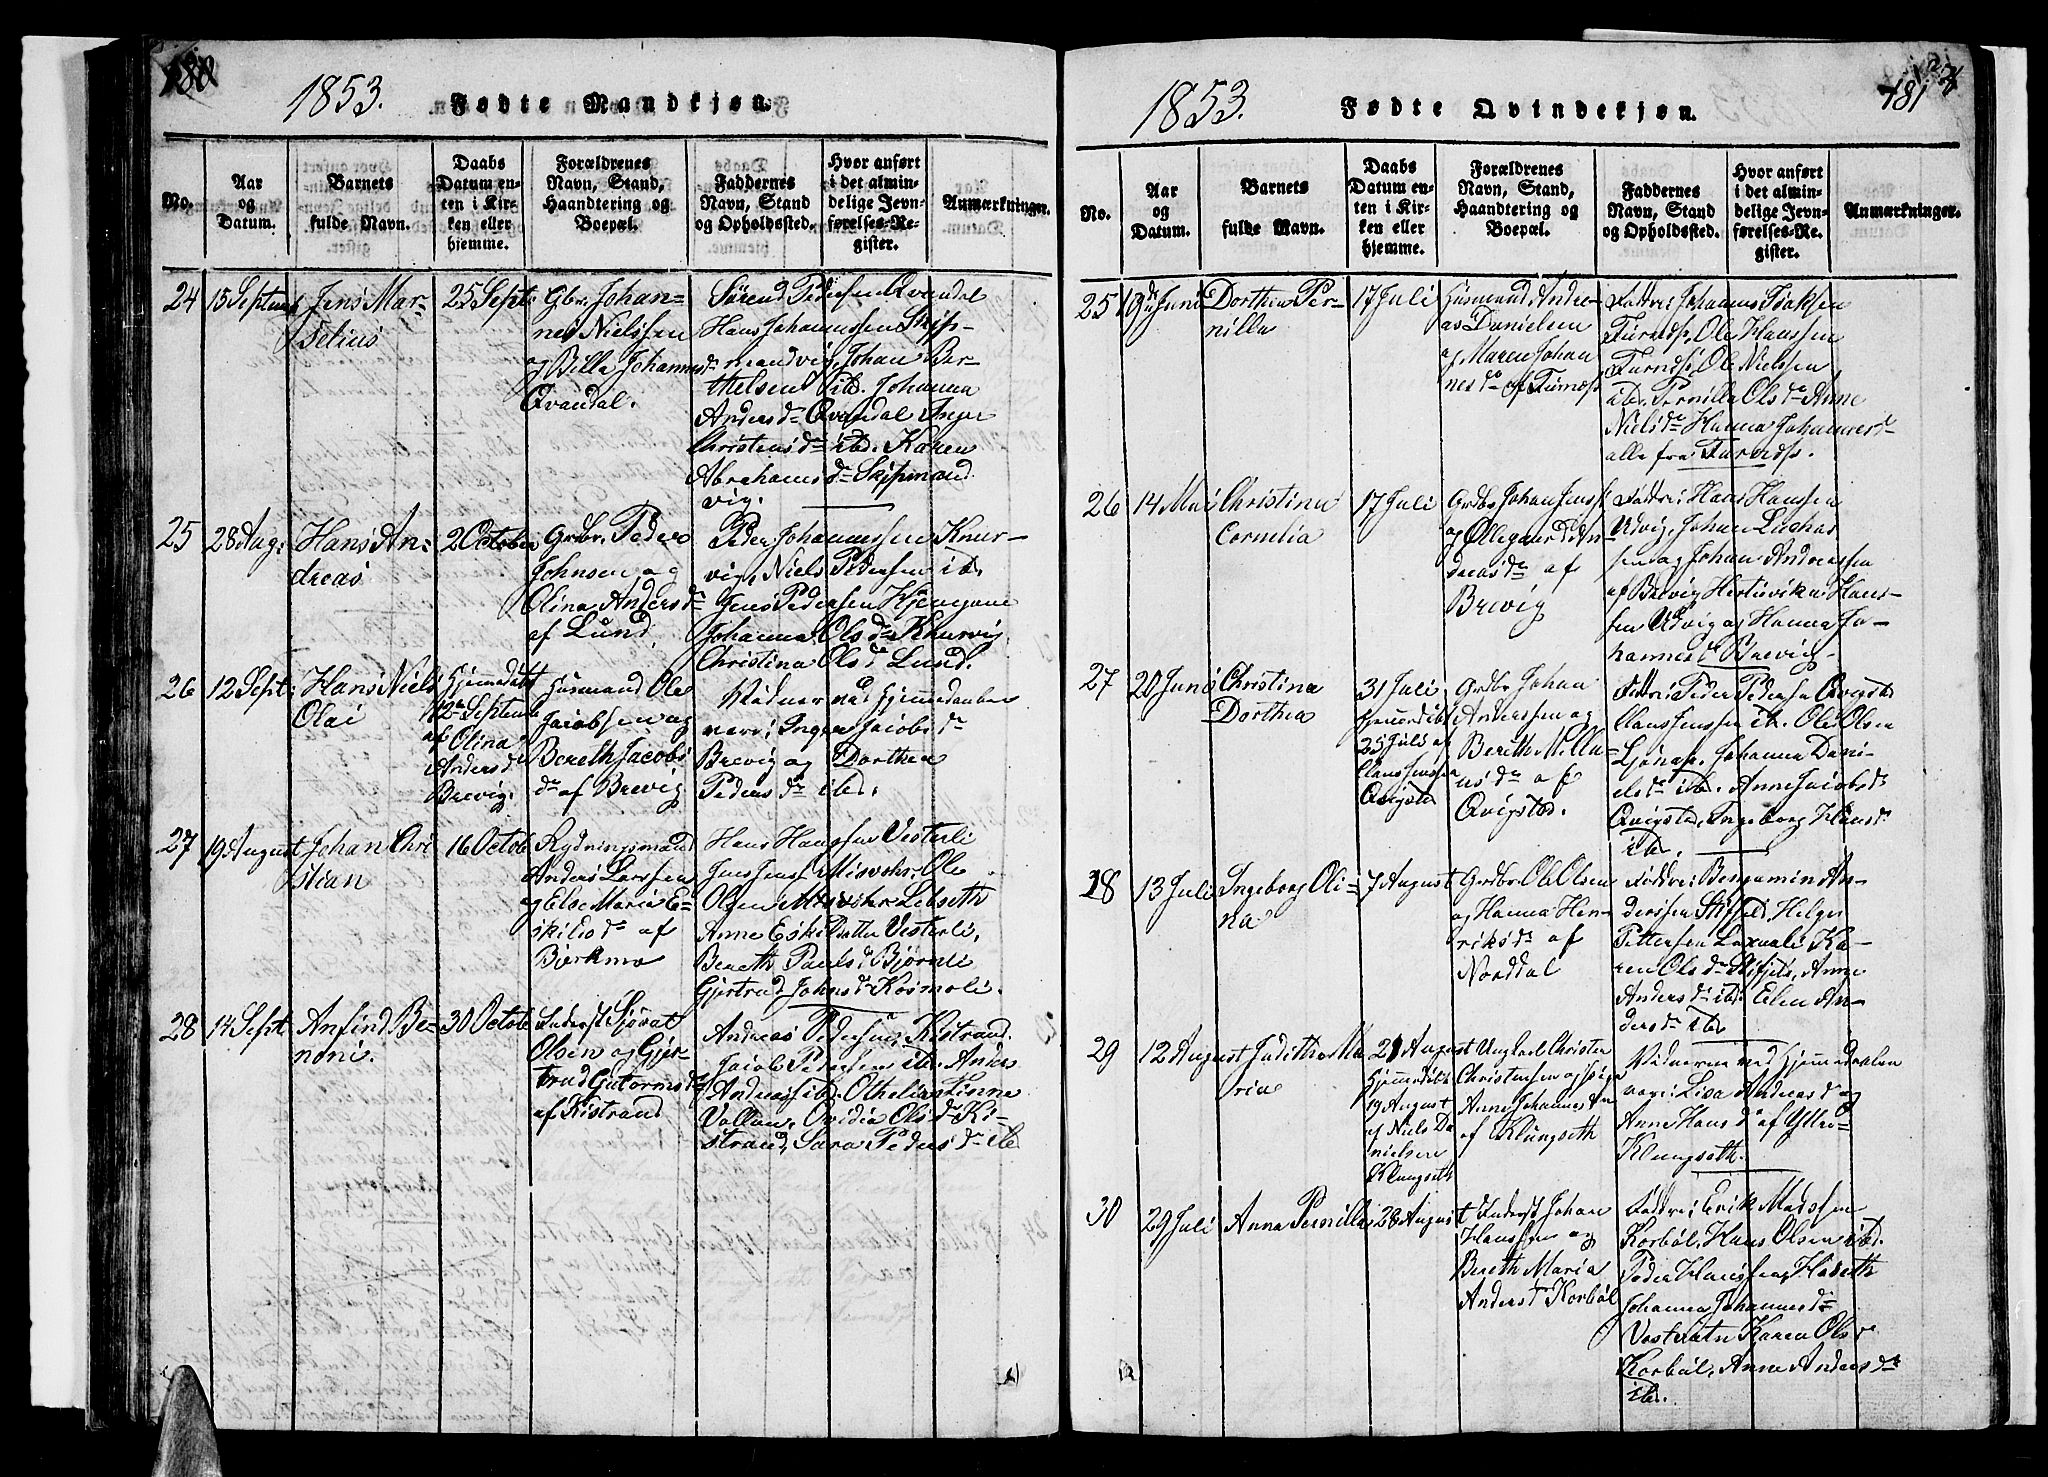 180
1853. Fødte Mandkjøn.
No.
Aar
og
Datum.
Barnets
fulde Navn.
Daabs
Datum en-
ten i Kir-
ken eller
hjemme.
Forældrenes
Navn, Stand,
Haandtering og
Boepæl.
Faddernes
Navn, Stand
og Opholdssted.
Hvor anført
i det almin-
delige Jevn-
førelses-Re-
gister.
Anmærkninger.
24
15 Septemb
Jens Mar-
selius
25 Sept:
Gbr. Johan-
nes Nielssen
og Billa Johannesd
Qvandal.
Sørend Pedersen Qvandal
Hans Johannssen Skip-
mandvig, Johan Ber-
thelsen ibd. Johanna
Andersdr Qvandal Inger
Christensdr ibd. Karen
Abrahamsdr Skipmand
vig.
25
28 Aug:
Hans An-
dreas
2 October
Grdbr. Peder
Johnsen og
Olina Andersdr
af Lund
Peder Johannssen Knur-
vig, Niels Pedersen ib.
Jens Pedersen Kjengsne
Johanna Olsdr Knurvig
Christina Olsdr Lund.
26
12 Sept:
Hans Niels
Olai
Hjemmedøbt
12 Septemb
af Olina
Andersd
Brevig.
Husmand Ole
Jacobsen og
Bereth Jacobs
dr af Brevig
Vidner ved Hjemmedaaben
vare: Inger Jacobsdr
Brevig og Dorthea
Pedersdr ibd.
27
19 August
Johan Chri
stian
16 Octob
Rydningsmand
Anders Larssen
og Else Maria E-
skilsdr af
Bjerkmo
Hans Hanssen Vesterli
Jens Jenss Misvær, Ole
Olsen Misvær Lebseth
Anne Eskildatter Vesterli,
Bereth Paulsd Bjørnli
Gjertrud Johnsdr Kosmoli.
28
14 Sept
Anfind Be-
noni.
30 Octob
Inderst Sjøvat
Olsen og Gjer-
trud Gutormsd
af Kistrand
Andreas Pedersen Kistrand.
Jacob Pedersen ibd. Anders
Andreass ibd. Othelia Lisine
Vollan, Ovidia Olsdr Ki-
strand, Sara Pedersdr ib
181
1853. Fødte Qvindekjøn.
No.
Aar
og
Datum.
Barnets
fulde Navn.
Daabs
Datum en-
ten i Kir-
ken eller
hjemme.
Forældrenes
Navn, Stand,
Haandtering og
Boepæl.
Faddernes
Navn, Stand
og Opholdssted.
Hvor anført
i det almin-
delige Jevn-
førelses-Re-
gister.
Anmærkninger.
25
19de Juni
Dorthea Per-
nilla
17 Juli
Husmand Andre-
as Danielsen
og Maren Johan
nesdr af Furnæs
Faddre: Johannes Isaksen
Furnæs, Ole Hanssen
Furnæs, Ole Nielssen
ibd. Pernilla Olsdr Anne
Nielsdr Hanna Johannesd
alle fra Furnæs.
26
14 Mai
Christina
Cornelia
17 Juli
Grdbr Johan Jenss
og Ollegaard An-
dreasdr af
Brevig
Faddre: Hans Hanssen
Udvig, Johan Luchas
sen og Johan Andreassen
af Brevig Hertinvika Hans-
sen Udvig og Hanna Jo-
hannesd Brevig
27
20 Juni
Christina
Dorthea
31 Juli
hjemmedøbt
25 Juli af
Claus Jenssen
Qvigsted
Grdbr Johan
Anderssen og
Berith Nilla
nsdr af
Qvigsted.
Faddre: Peder Pedersen Qvigsted
Claus Jenssen ib. Ole Olsen
Ljønæs, Johanna Dani-
elsdr ibd. Anne Jacobsdr
Qvigsted, Ingeborg Hansdr
ib.
28
13 Juli
Ingeborg Oli-
na
7 August
Grdbr Ole Olsen
og Hanna Hen-
riksdr af
Norddal
Faddre: Benjamin An-
derssen Skifjeld, Helge
Pettersen Laxaali Ka-
ren Olsdr Skifjeld, Anne
Andersdr ibd. Elen An-
dersdr ibd
29
12 August
Judithe Ma
ria
21 August
Hjemmedøbt
19 August
af Niels Da
nielsen
Klungseth
Ungkarl Christen
Christensen og Pige
Anne Johannesdr
af Klungseth
Vidnerne ved Hjemmedaaben
vare: Lisa Andreasd og
Anne Hansd af Yttre
Klungseth.
30
29 Juli
Anna Pernilla
28 August
Inderst Johan
Hanssen og
Bereth Maria
Andersd Korbøl
Faddre: Erik Madssen
Korbøl, Hans Olsen ibd.
Peder Hanssen, Haseth
Johanna Johannesdr
Vesteratn Karen Olsdr
Korbøl, Anne Andersdr
ibd.